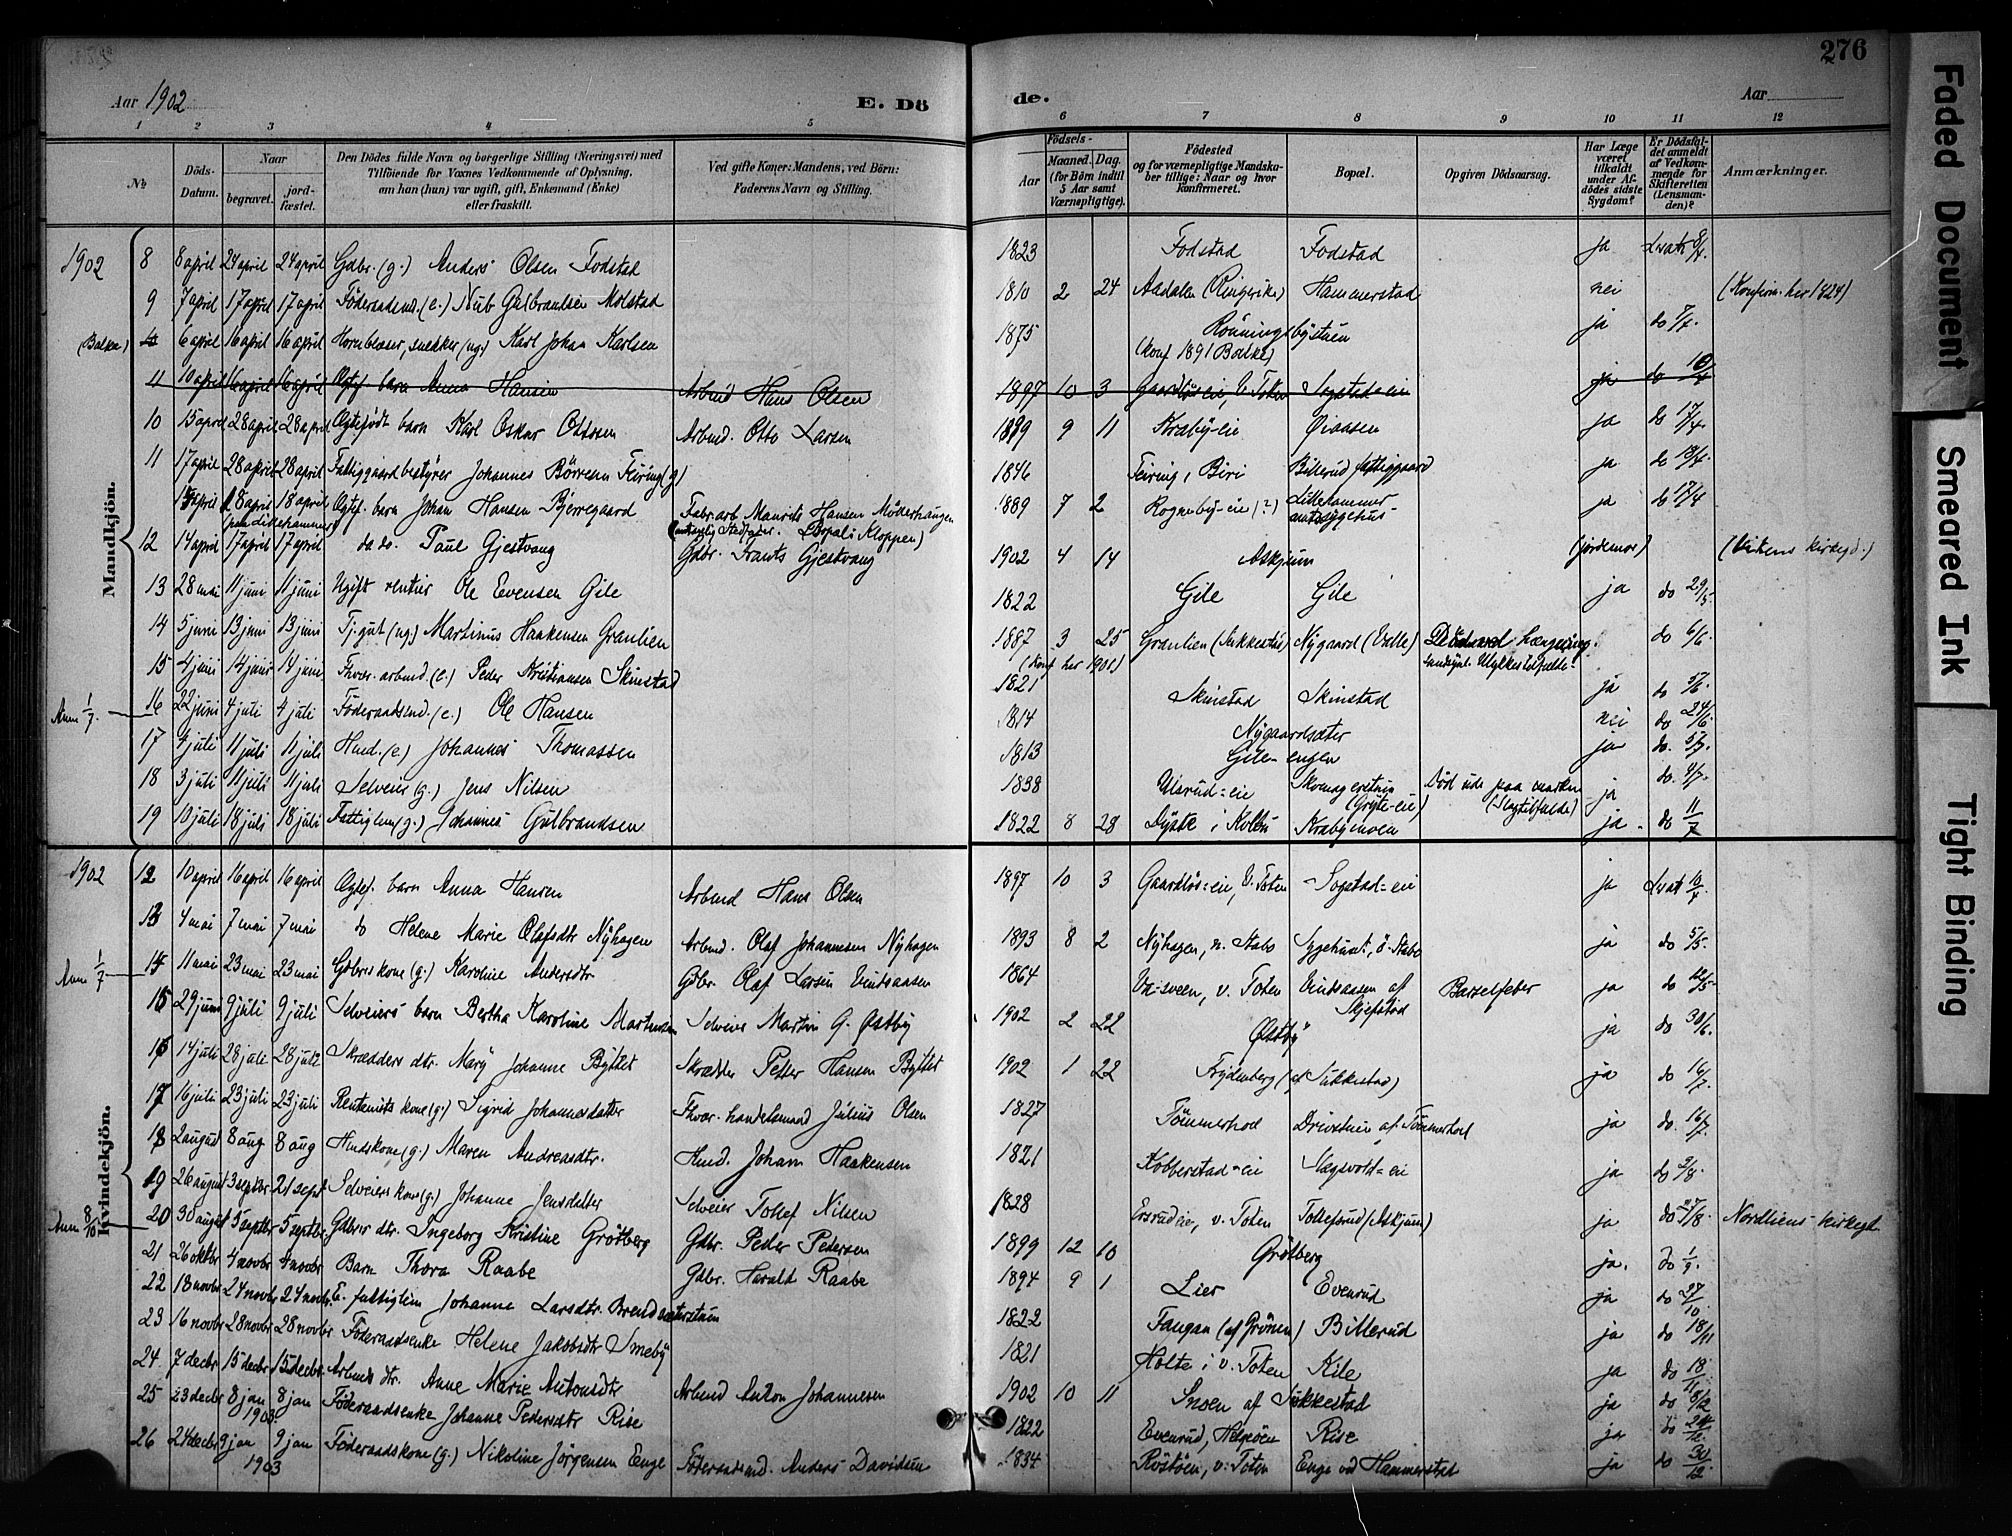 276
Aar 1902 E. Dö de. Aar
1 2 3 4 5 6 7 8 9 10 11 12
No. Döds-Datum. Naar begravet. jord-fæstet. Den Dödes fulde Navn og borgerlige Stilling (Næringsvei) med Tilföiende for Voxnes Vedkommende af Oplysning, om han (hun) var ugift, gift, Enkemand (Enke) eller fraskilt. Ved gifte Koner: Mandens, ved Börn: Faderens Navn og Stilling. Födsels- Aar Maaned. Dag. (for Börn indtil 5 Aar samt Værnepligtige). Födested og for værnepligtige Mandskaber tillige: Naar og hvor Konfirmeret. Bopæl. Opgiven Dödsaarsag. Har Læge været tilkaldt under Afdödes sidste Sygdom? Er Dödsfaldet anmeldt af Vedkommende for Skifteretten (Lensmanden)? Anmærkninger.
Mandkjön.
1902 8 8 april 24 april 24 april Gdbr. (g.) Anders Olsen Fodstad 1823 Fodstad Fodstad ja 8/4
9 7 april 17 april 17 april Föderaadsmd. (e.) Gulbrandsen Molstad 1810 2 24 Aadalen (Ringerike) Hammerstad nei (Konfirm. her 1824)
(Balke) 6 april 16 april 16 april Hornblæser, snekker (ug.) Karl Johan Karlsen 1875 Rönningsbystuen ja do 7/4.
(konf 1891 Balke)
11 10 april 16 april 16 april Ægtef. barn Anna Hansen Arbmd Hans Olsen 1897 10 3 Gaardlös-eie, V. Toten Sogstad=eie ja do 10/4
10 15 april 28 april 28 april Ægtefödt barn Karl Oskar Ottosen Arbmd. Otto Larsen 1899 9 11 Kraby-eie Öiaasen ja do 17/4.
11 17 april 28 april 28 april Fattiggaardbestyrer Johannes Börresen Feiring (g) 1846 Feiring, Biri Billerud fattiggaard ja do 18/4.
15 april 18 april 18 april Ægtef. barn Johan Hansen Bjerregaard Fabr.arb Maurits Hansen Möderhaugen 1889 7 2 Rogneby-eie (?) Lillehammer amtssygehus- ja do 17/4
(paa Lillehammer) Kloppen)
12 14 april 17 april 17 april do do. Paul Gjestvang Gdbr. Frants Gjestvang 1902 4 14 Askjum (jordemor) (Vikens kirkegd.)
13 28 mai 11 juni 11 juni Ugift rentier Ole Evensen Gile 1822 Gile Gile ja do 29/5.
14 5 juni 13 juni 13 juni Tj.gut (ug.) Martinus Haakensen Granlien 1887 3 25 Granlien (Sukkestad) Nygaard (Valle) Död ved hængning. do 6/6.
(Konf her 1901) Ulykkestilfælde-
15 4 juni 14 juni 14 juni Fhvr. arbmd. (e.) Peder Kristiansen Skinstad 1821 Skinstad Skinstad ja do 5/6.
Anm 1/7. 16 22 juni 4 juli 4 juli Föderaadsmd. (e.) Ole Hansen 1814 Nygaardsæter nei do 24/6
17 4 juli 11 juli 11 juli Hmd. (e) Johannes Thomassen 1813 Gile-engen ja do. 5/7.
18 3 juli 11 juli 11 juli Selveier (g.) Jens Nilsen 1838 Ulsrud=eie (Gryte-eie) Död ude paa marken (Slagtilfælde) ja do. 4/7.
19 10 juli 18 juli 18 juli Fattiglem (g.) Johannes Gulbrandsen 1822 8 28 Dyste i Kolbu Krabymoen ja do 11/7
Kvindekjön.
1902 12 10 april 16 april 16 april Ægtef. barn Anna Hansen Arbmd Hans Olsen 1897 10 3 Gaardlös=eie, V. Toten Sogstad=eie ja 10/4
13 4 mai 7 mai 7 mai do Helene Marie Olafsdtr Nyhagen Arbmd. Olaf Johannesen Nyhagen 1893 8 2 Nyhagen, n. Stabo Sygehuset, ö. Stabo ja do 5/5.
Anm 1/7 14 11 mai 23 mai 23 mai Gdbrs kone (g.) Karoline Andersdtr. Gdbr. Olaf Larsen Vindaasen 1864 V. Toten Vindaasen af Skjefstad Barselfeber ja do 12/5
15 29 juni 9 juli 9 juli Selveiers barn Bertha Karoline Martinsen Selveier Martin G. Östby 1902 2 22 Östby ja do 30/6.
16 14 juli 28 juli 28 juli Skrædders dtr. Mary Johanne Byttet Skrædder Petter Hansen Byttet 1902 1 22 Frydenberg (af Sukkestad) ja do 16/7.
17 16 juli 23 juli 23 juli Rentenists kone (g.) Sigrid Johannesdatter Fhvr. handelsmand Julius Olsen 1827 Tömmerhol Drivstuen af Tömmerhol ja do. 16/7.
18 2 august 8 aug 8 aug Hmdskone (g.) Maren Andreasdtr. Hmd. Johan Haakensen 1821 Kobberstad-eie Slagsvold=eie ja do 2/8.
19 26 august 3 septbr 21 sept Selveiers kone (g.) Johanne Jensdatter Selveier Tollef Nilsen 1828 v. Toten Tollefsrud (Askjum) ja do 27/8.
Anm 8/10 20 30 august 5 septbr 5 septbr Gdbrer dtr. Ingeborg Kristine Grötberg Gdbr. Peder Pedersen 1899 12 10 Grötberg ja. do 1/9. Nordliens kirkegd.
21 26 oktbr 4 novbr 4 novbr Barn Thora Raabe Gdbr. Harald Raabe 1894 9 1 Lier Evenrud ja do 27/10.
22 18 novbr 24 novbr 24 novbr. E. fattiglem Johanne Larsdtr. 1822 Faugan (af Grönen) Billerud ja do 18/11
23 16 novbr 28 novbr 28 novbr Föderaadsenke Helene Jakobsdtr Smeby 1821 Holte i v. Toten Kile ja do 18/11
24. 7 decbr 15 decbr 15 decbr Arbmds dtr. Anne Marie Antonsdtr Arbmd Anton Johannesen 1902 10 11 Snoen af Sukkestad ja do 8/12
25 23 decbr 8 jan 1903. 8 jan Föderaadsenke Johanne Pedersdtr Rise 1822 Evenrud, Helgöen Rise ja do
26 24 decbr 9 jan 1903 9 jan Föderaadskone (g.) Nikoline Jörgensen Enge Föderaadsmd. Anders Davidsen 1834 Röstöen, v. Toten Enge ved Hammerstad ja do 30/12.
Faded Document
Smeared Ink
Tight Binding